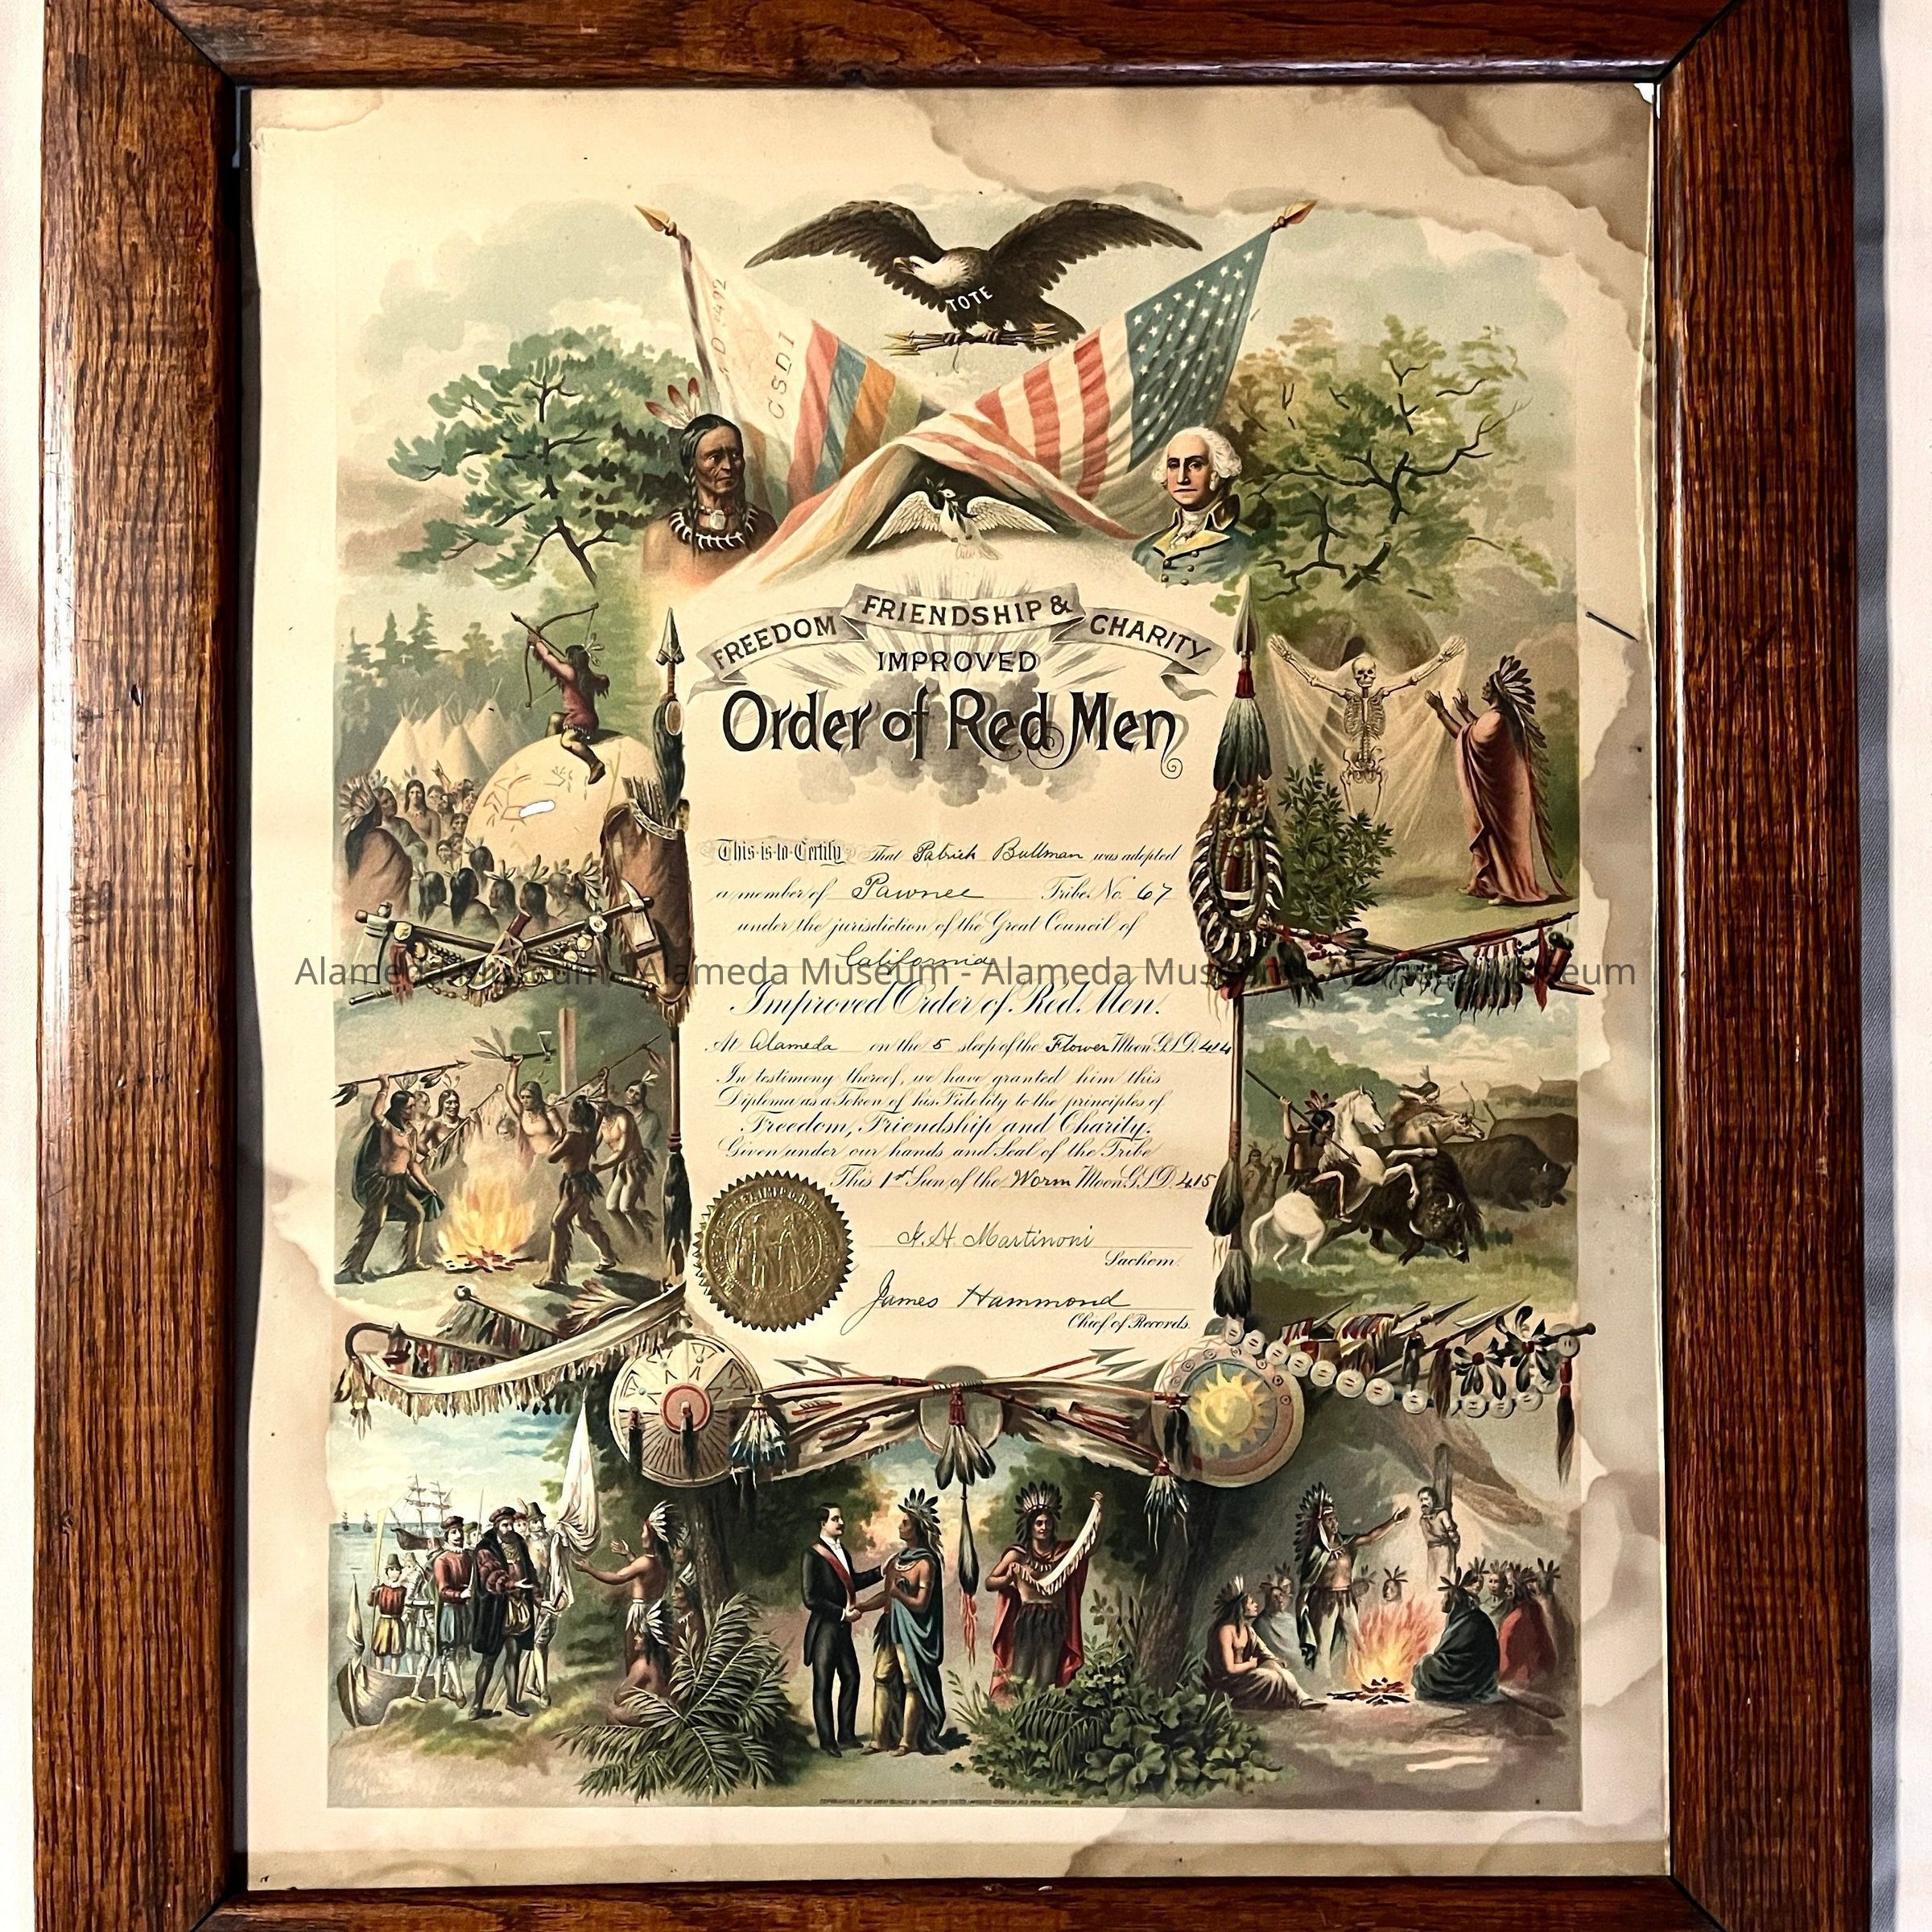 TOTE
G S D 1
FREEDOM FRIENDSHIP & CHARITY
IMPROVED
Order of Red Men
This is to Certify That Patrick Bullman was adopted
a member of Pawnee Tribe No. 67
under the jurisdiction of the Great Council of
California
Alameda Museum - Alameda Museum - Alameda Museum - Alameda Museum
Improved Order of Red Men.
At Alameda on the 5 sleep of the Flower Moon G.S.D. 414
In testimony thereof, we have granted him this
Diploma as a Token of his Fidelity to the principles of
Freedom, Friendship and Charity.
Given under our hands and Seal of the Tribe
This 1st Sun of the Worm Moon G.S.D. 415
Martinoni
Sachem.
James Hammond
Chief of Records.